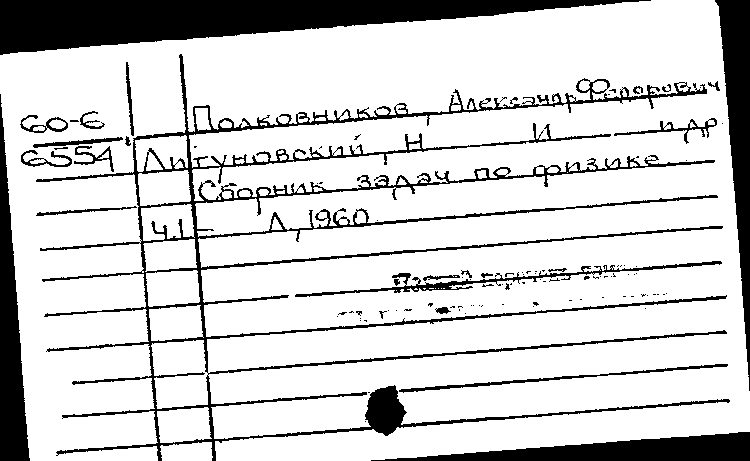 60-6
6554
Полковников, Александр Федорович
Литуновский, Н И и др
Сборник задач по физике
Ч.1 - Л, 1960